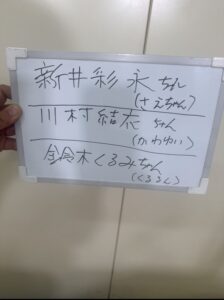 新井彩永ちゃん
(さえちゃん)
川村結衣ちゃん
(かわゆい)
鈴木くるみちゃん
(くるるん)